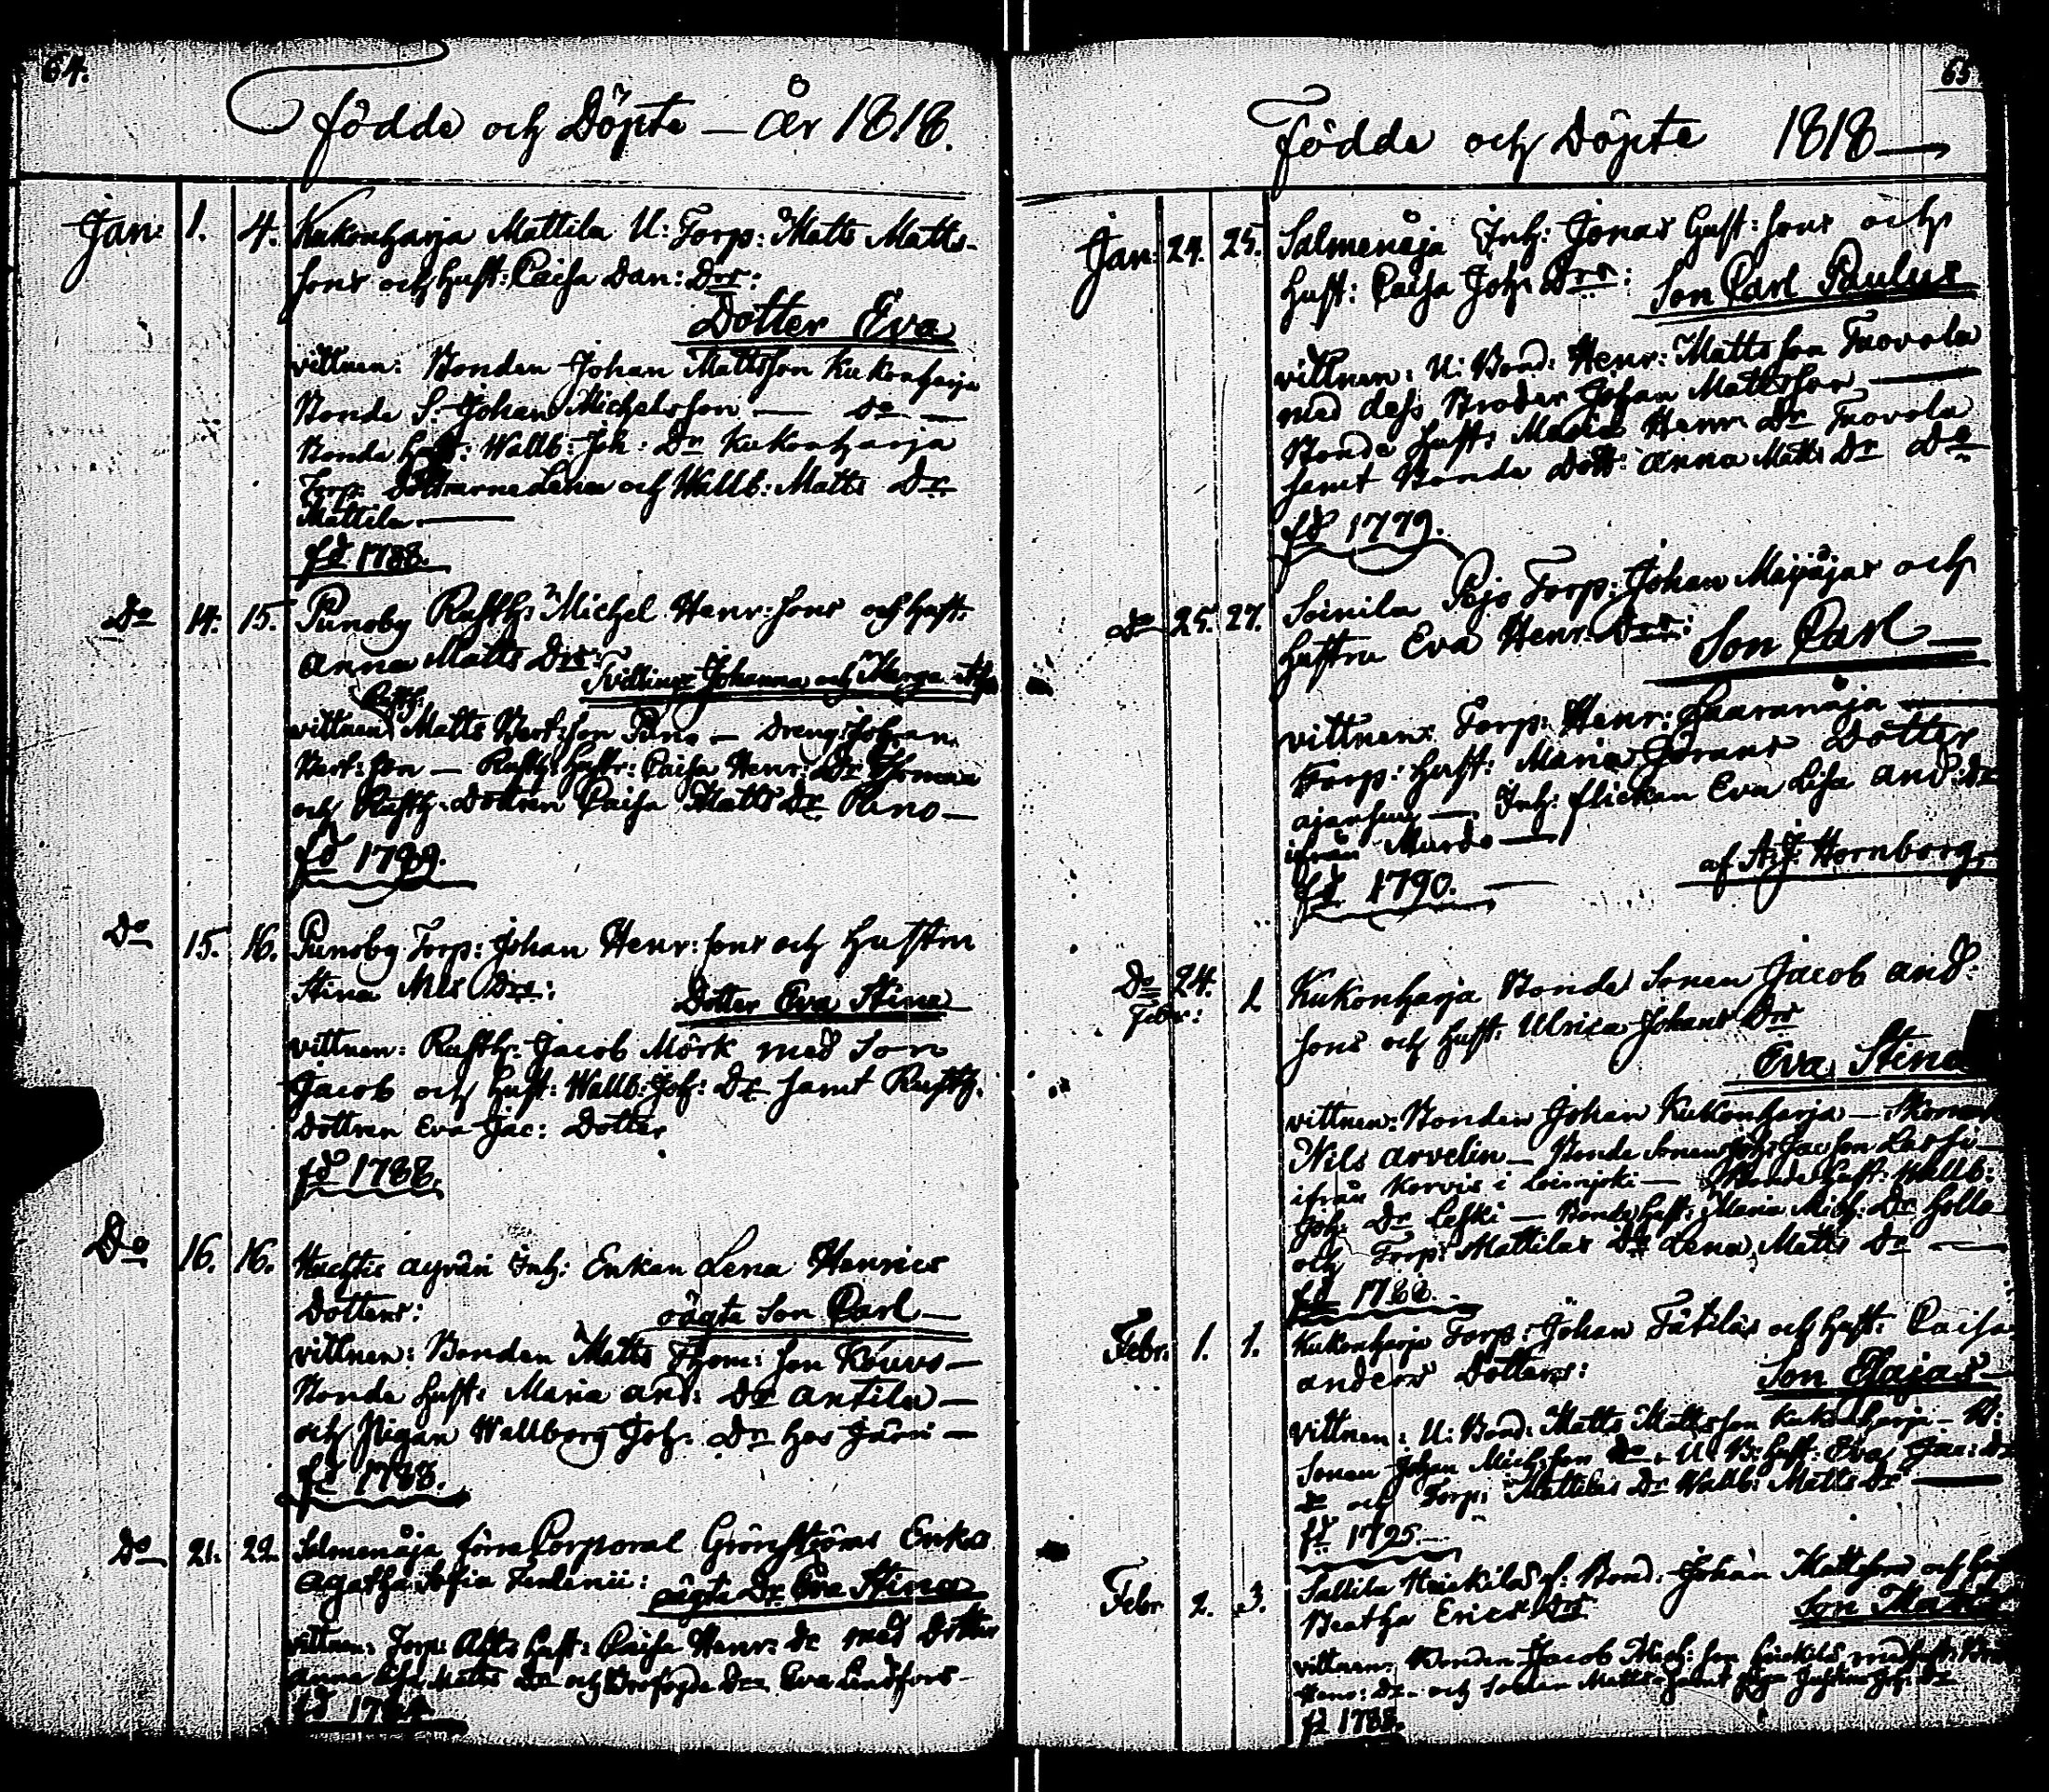 64.
födde och Döpte — År 1818.
Jan: 1. 4. Kukonharja Mattila U: Torp: Matts Matts-
sons och hust: Caisa Dan: Drs:
Dotter Eva
vittnen: Bonden Johan Mattsson Kukonharja
Bonde S. Johan Michelsson — do —
Bonde hust: Wallb: Joh: Dr Kukonharja
Torp: Döttrarne Lena och Wallb: Matts Dr
Mattila —
fd 1788.
Do 14. 15. Punoby Rusth: Michel Henr: sons och hust:
Anna Matts Drs: Tvillingr Johanna och Margaretha
Rusth:
vittnen Matts Bert:son Puno — Dreng: Johan
Bert:son — Rusth: hustr: Caisa Henr: Dr
och Rusth: dottren Caisa Matts Dr Puno —
fd 1789.
Do 15. 16. Punoby Torp: Johan Henr: sons och hustru
Stina Nils Drs: Dotter Eva Stina
vittnen: Rusth: Jacob Mörk med Son
Jacob och hust: Wallb: Joh: Dr samt Rusth:
dottren Eva Jac: Dotter
fd 1788.
Do 16. 16. Äyräri Inh: Enkan Lena Henrics
Dotters: oägta Son Carl —
vittnen: Bonden Matts Thom: son Kouvo —
Bonde hust: Maria And: Dr Antila —
och Pigan Wallborg Joh: Dr hos Järvi —
fd 1788.
Do 21. 22. Salmenoja förre Corporal Grönströms Enka
Agatha Sofia: oägta Dr Eva Stina
vittnen: Torp: hust: Caisa Henr: Dr med Dotter
Anna Lisa Matts Dr och Dr Eva Lindfors
fd
65
Födde och Döpte 1818 —
Jan: 24. 25. Salmenoja Inh: Jonas Gust: sons och
hust: Caisa Joh: Drs: Son Carl Paulus
vittnen: U: Bond: Henr: Mattsson Tuovola
med dess Broder Johan Mattsson —
Bonde hust: Maria Henr: Dr Tuovola
samt Bonde dott: Anna Matts Dr Do
fd 1779.
Do 25. 27. Soinila Torp: Johan och
hustru Eva Henr: Drs: Son Carl —
vittnen: Torp: Henr: —
Torp: hust: Maria Görans Dotter
— Inh: flickan Eva Lisa And: Dr
ifrån Murdo —
fd 1790. — af A: J: Hornborg
Do 24. Febr: 2 Kukonharja Bonde Sonen Jacob And:
sons och hust: Ulrica Johans Drs
Eva Stina
vittnen: Bonden Johan Kukonharja —
Nils Arvelin — Bonde Sonen Joh: Jacson
ifrån Korvis i Loimjoki — Bonde hust: Wallb:
Joh: Dr — Bonde hust: Maria Mich: Dr
och Torp: Mattilas Dr Lena Matts Dr —
fd 1788.
Febr: 1. 1. Kukonharja Torp: Johan och hust: Caisa
Anders Dotters: Son Esajas —
vittnen: U: Bond: Matts Mattsson Kukonharja — B:
Sonen Johan Mich:son do U: B: hust: Eva Dr
do och Torp: Mattilas Dr Wallb: Matts Dr —
fd 1795.
Febr 2. 3. Sallila Heickilä Bond: Johan Mattsons och
Beatha Erics Drs: Son Matts
vittnen: Bonden Jacob Mich: son med hust:
Henr: Dr och Sonen Matts samt Piga Joh: Dr
fd 1788.